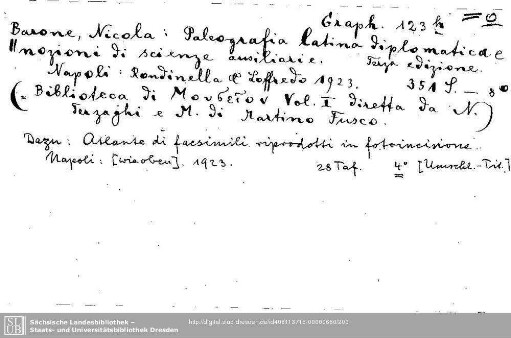 Graph. 123 h = 0
Barone, Nicola: Paleografia latina diplomatica e
nozioni di scienze ausiliarie. Terza edizione.
Napoli: Rondinella & Loffredo 1923. 351 S. — 8°
(= Biblioteca di Μουσεῖον Vol. I diretta da N.
Terzaghi e M. di Martino Fusco.)
Dazu: Atlante di facsimili riprodotti in fotoincisione.
Napoli: [wie oben]. 1923. 28 Taf. 4° [Umschl.-Tit.]
SLUB
Sächsische Landesbibliothek –
Staats- und Universitätsbibliothek Dresden